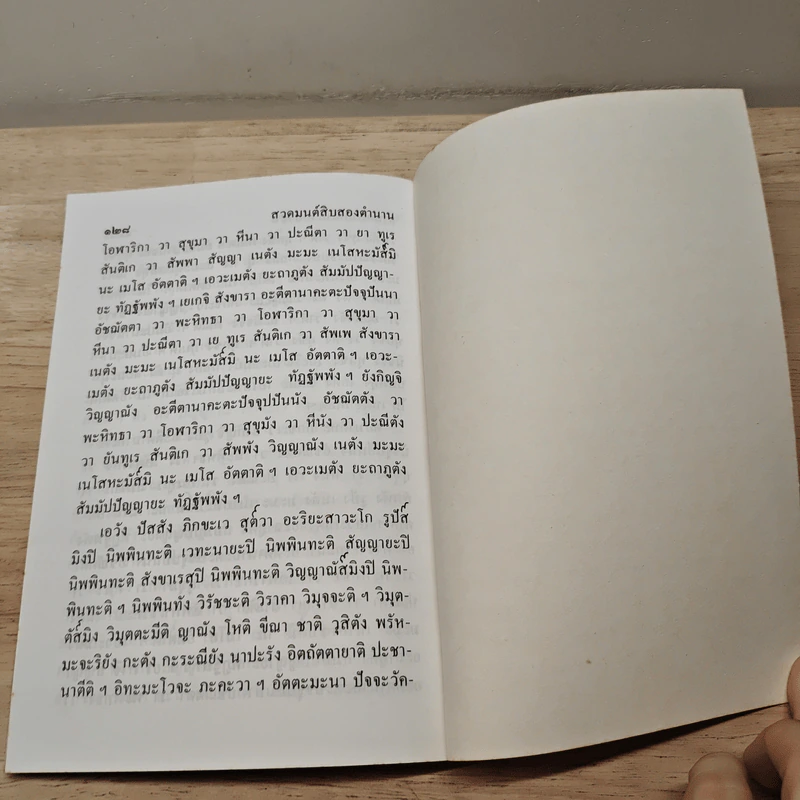 ๑๒๘ สวดมนต์สิบสองตำนาน
โอฬาริกา วา สุขุมา วา หีนา วา ปะณีตา วา ยา ทูเร
สันติเก วา สัพพา สัญญา เนตัง มะมะ เนโสหะมัส๎มิ
นะ เมโส อัตตาติ ฯ เอวะเมตัง ยะถาภูตัง สัมมัปปัญญา-
ยะ ทัฏฐัพพัง ฯ เยเกจิ สังขารา อะตีตานาคะตะปัจจุปันนา
อัชฌัตตา วา พะหิทธา วา โอฬาริกา วา สุขุมา วา
หีนา วา ปะณีตา วา เย ทูเร สันติเก วา สัพเพ สังขารา
เนตัง มะมะ เนโสหะมัส๎มิ นะ เมโส อัตตาติ ฯ เอวะ-
เมตัง ยะถาภูตัง สัมมัปปัญญายะ ทัฏฐัพพัง ฯ ยังกิญจิ
วิญญาณัง อะตีตานาคะตะปัจจุปปันนัง อัชฌัตตัง วา
พะหิทธา วา โอฬาริกัง วา สุขุมัง วา หีนัง วา ปะณีตัง
วา ยันทูเร สันติเก วา สัพพัง วิญญาณัง เนตัง มะมะ
เนโสหะมัส๎มิ นะ เมโส อัตตาติ ฯ เอวะเมตัง ยะถาภูตัง
สัมมัปปัญญายะ ทัฏฐัพพัง ฯ
เอวัง ปัสสัง ภิกขะเว สุต๎วา อะริยะสาวะโก รูปัส๎
มิงปิ นิพพินทะติ เวทะนายะปิ นิพพินทะติ สัญญายะปิ
นิพพินทะติ สังขาเรสุปิ นิพพินทะติ วิญญาณัส๎มิงปิ นิพ-
พินทะติ ฯ นิพพินทัง วิรัชชะติ วิราคา วิมุจจะติ ฯ วิมุต-
ตัส๎มิง วิมุตตะมีติ ญาณัง โหติ ขีณา ชาติ วุสิตัง พรัห-
มะจะริยัง กะตัง กะระณียัง นาปะรัง อิตถัตตายาติ ปะชา-
นาตีติ ฯ อิทะมะโวจะ ภะคะวา ฯ อัตตะมะนา ปัจจะวัค-